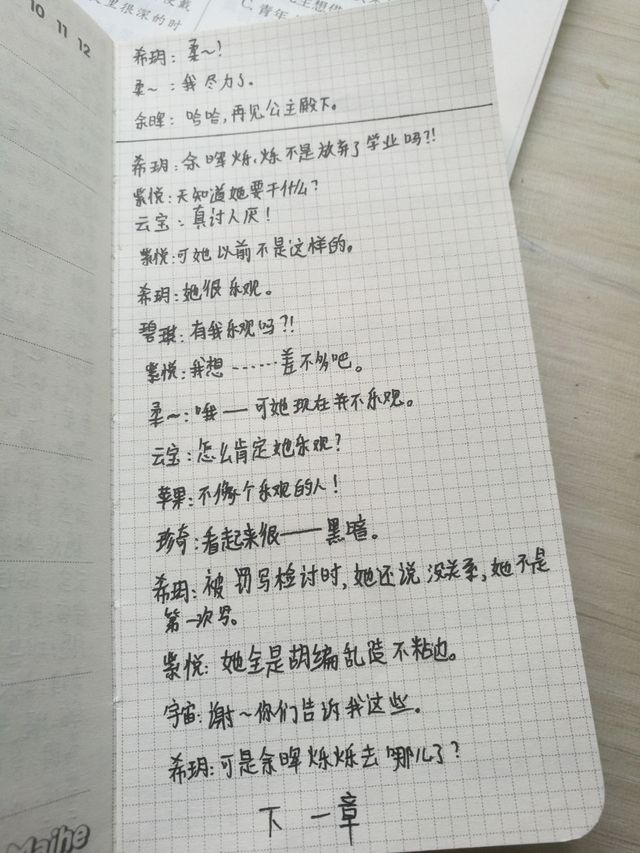 10 11 12
里很深的时
C. 青年
希玥：柔～!
柔～：我尽力了。
余晖：哈哈,再见公主殿下。
希玥：余晖烁,烁不是放弃了学业吗?!
紫悦：天知道她要干什么?
云宝：真讨人厌!
紫悦：可她以前不是这样的。
希玥：她很乐观。
碧琪：有我乐观吗?!
紫悦：我想……差不多吧。
柔～：哦——可她现在并不乐观。
云宝：怎么肯定她乐观?
苹果：不像个乐观的人!
珍奇：看起来很——黑暗。
希玥：被罚写检讨时,她还说没关系,她不是
第一次写。
紫悦：她全是胡编乱造不粘边。
宇宙：谢～你们告诉我这些。
希玥：可是余晖烁烁去哪儿了?
下一章
Maihe